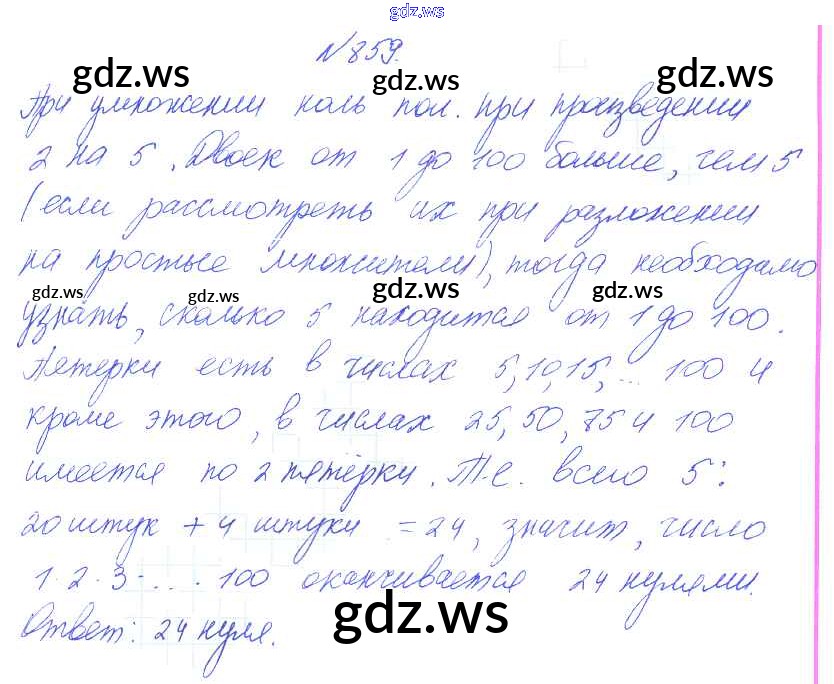 gdz.ws
№859.
gdz.ws gdz.ws
При умножении ноль пол. при произведении
2 на 5. Двоек от 1 до 100 больше, чем 5
(если рассмотреть их при разложении
на простые множители), тогда необходимо
gdz.ws gdz.ws gdz.ws gdz.ws
узнать, сколько 5 находится от 1 до 100.
Пятерки есть в числах 5, 10, 15, ... 100 и
кроме этого, в числах 25, 50, 75 и 100
имеется по 2 пятёрки. Т.е. всего 5:
20 штук + 4 штуки = 24, значит, число
1·2·3·...·100 оканчивается 24 нулями.
Ответ: 24 нуля.
gdz.ws